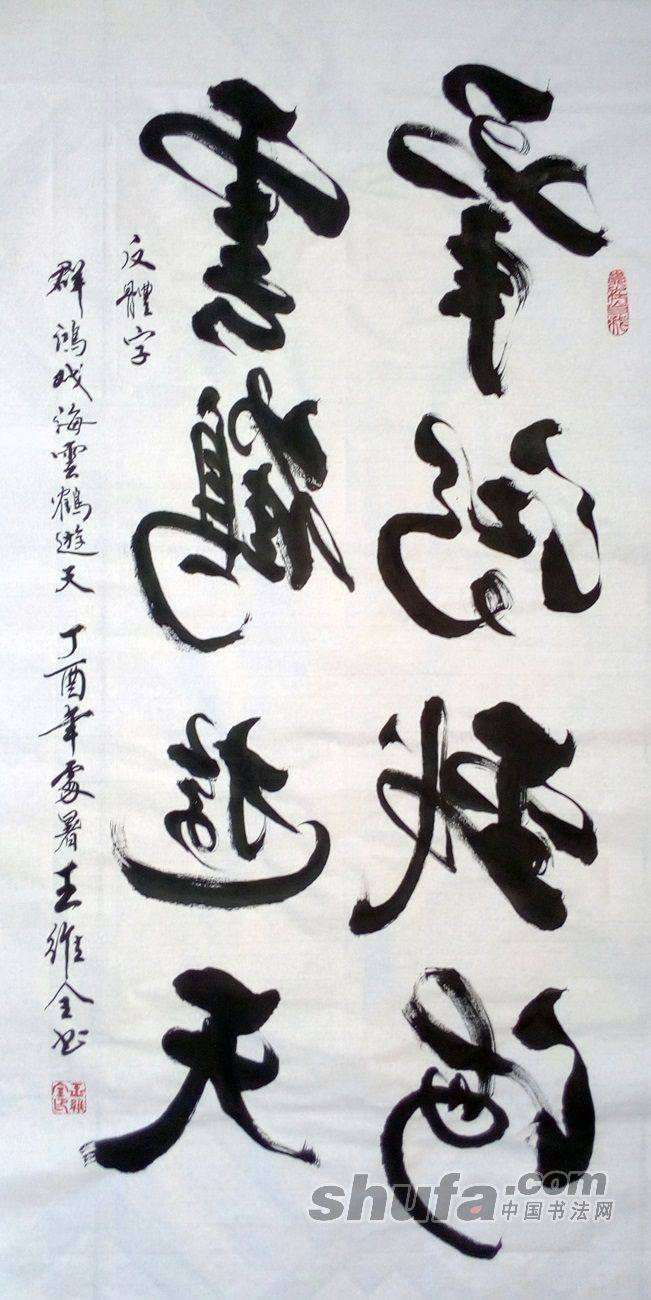 群鴻戏海
雲鶴遊天
反體字
群鴻戏海雲鶴遊天 丁酉年處暑王維全书
王維全印
shufa.com
中国书法网